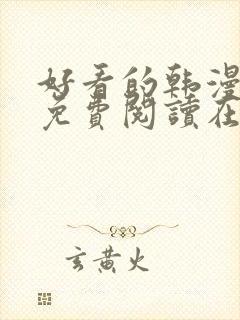 好看的韩漫
免費閱讀在
玄黄火